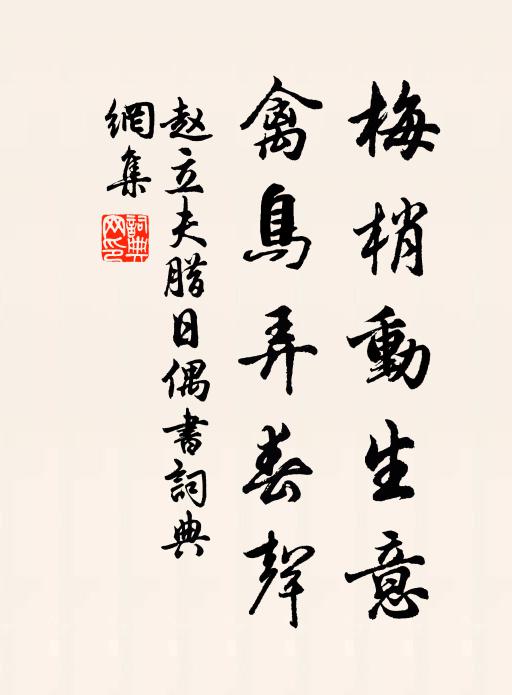 梅梢動生意
禽鳥弄春聲
赵立夫腊日偶書詞典
網集
詞典
网印